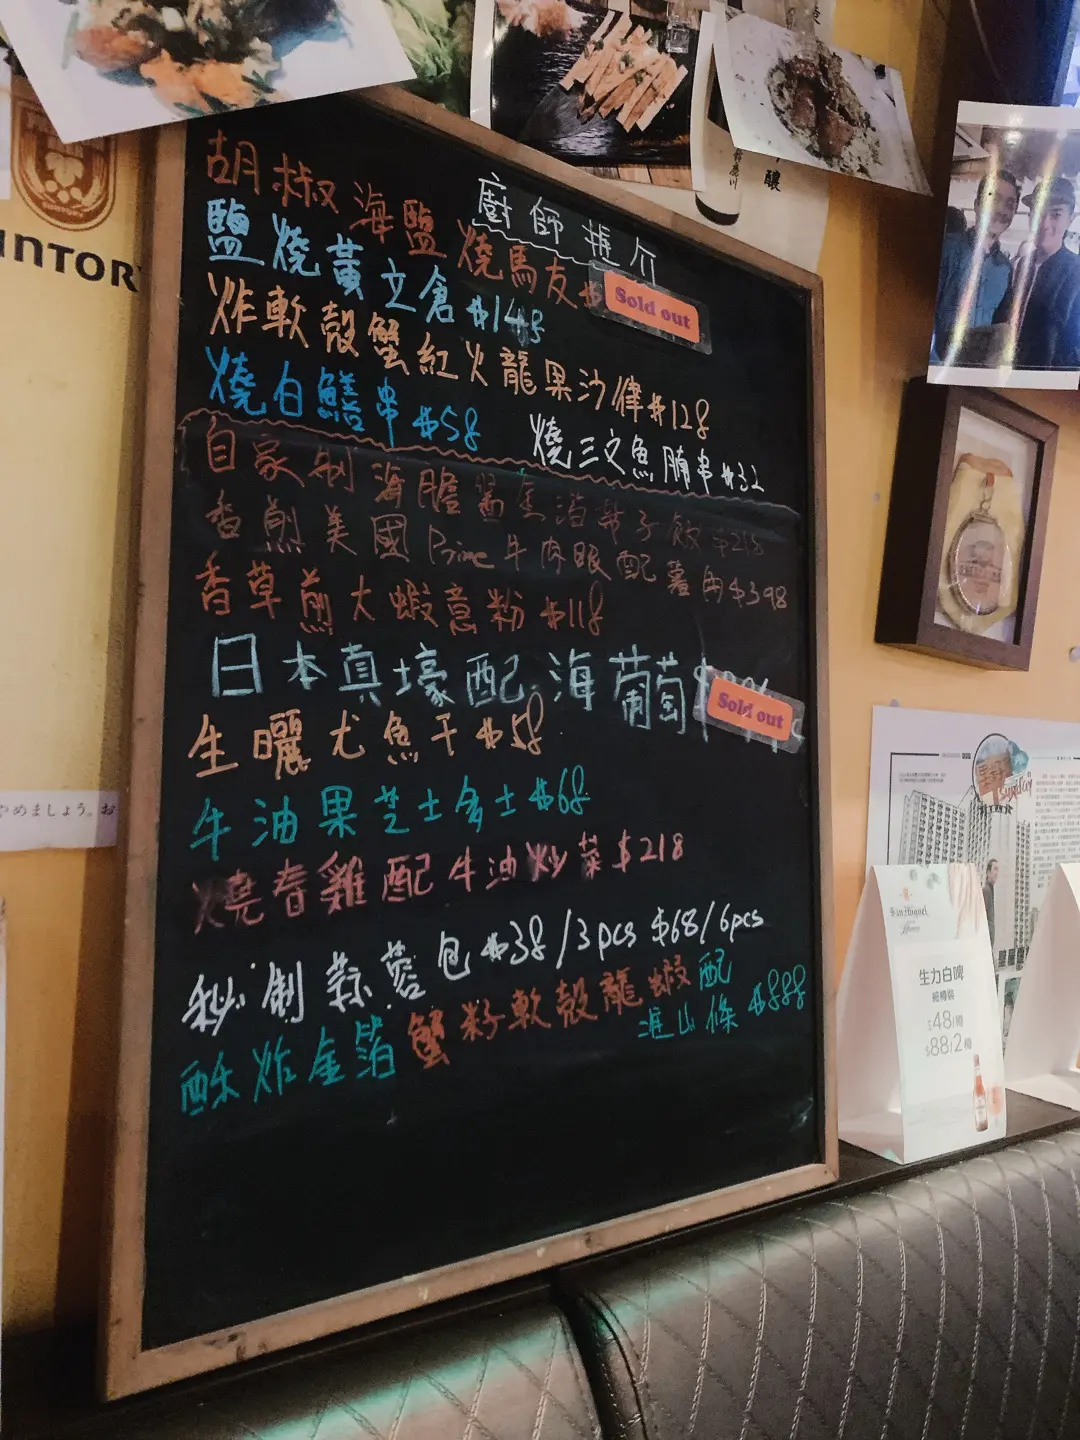 廚師推介
胡椒海鹽燒馬友$
Sold out
鹽燒黃立倉$148
炸軟殼蟹紅火龍果沙律$128
燒白鱔串$58
燒三文魚腩串$32
自家制海膽醬金沿帶子飯$218
香煎美國Prime牛肉眼配薯角$398
香草煎大蝦意粉$118
日本真壕配海葡萄$
Sold out
生曬尤魚干$58
牛油果芝士多士$68
燒春雞配牛油炒菜$218
秘制蒜蓉包$38/3pcs $68/6pcs
酥炸金箔蟹籽軟殼龍蝦配
淮山條$888
生力白啤
$48/樽
$88/2樽
San Miguel
やめましょう。お